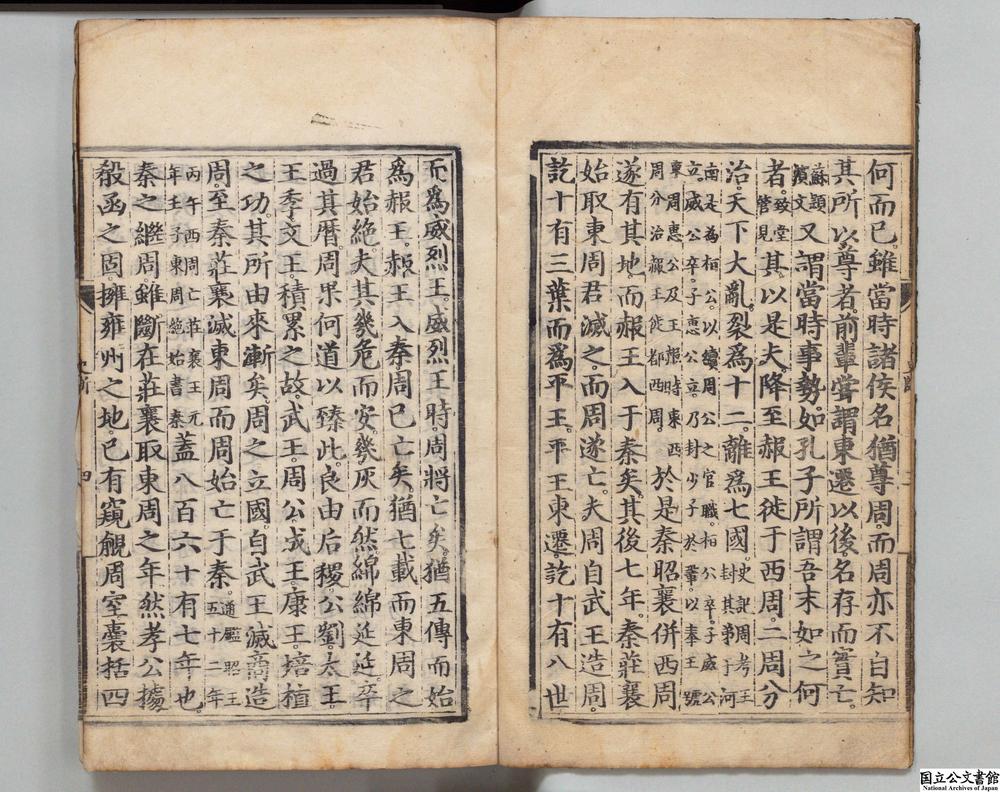 何而已。雖當時諸侯名猶尊周。而周亦不自知
其所以尊者。前輩嘗謂東遷以後名存而實亡。
蘇穎濱文
又謂當時事勢。如孔子所謂吾末如之何
者。
致堂管見
其以是夫降至赧王徙于西周。二周分
治。天下大亂。裂為十二。離為七國。
史記周考王封其弟于河
南是為桓公。以續周公之官職。桓公卒。子威公
立。威公卒。子惠公立。乃封少子於鞏。以奉王號
東周惠公。及王赧時東西
周分治。赧王徙都西周。
於是秦昭襄併西周
遂有其地。而赧王入于秦矣。其後七年秦莊襄
始取東周君滅之。而周遂亡。夫周自武王造周。
訖十有三葉而為平王。平王東遷。訖十有八世
而為威烈王。威烈王時。周將亡矣。猶五傳而始
為赧王。赧王入秦周已亡矣。猶七載而東周之
君始絕。夫其幾危而安。幾灰而然。綿綿延延。卒
過其曆。周果何道以臻此。良由后稷。公劉。太王。
王季。文王。積累之故。武王。周公。成王。康王。培植
之功。其所由來漸矣。周之立國。自武王滅商造
周。至秦莊襄滅東周而周始亡于秦。
通鑑昭王五十二年
丙午西周亡。莊襄王元
年壬子東周絕。始書秦
蓋八百六十有七年也。
秦之繼周。雖斷在莊襄取東周之年。然孝公據
殽函之固。擁雍州之地。已有窺覦周室囊括四
国立公文書館
National Archives of Japan